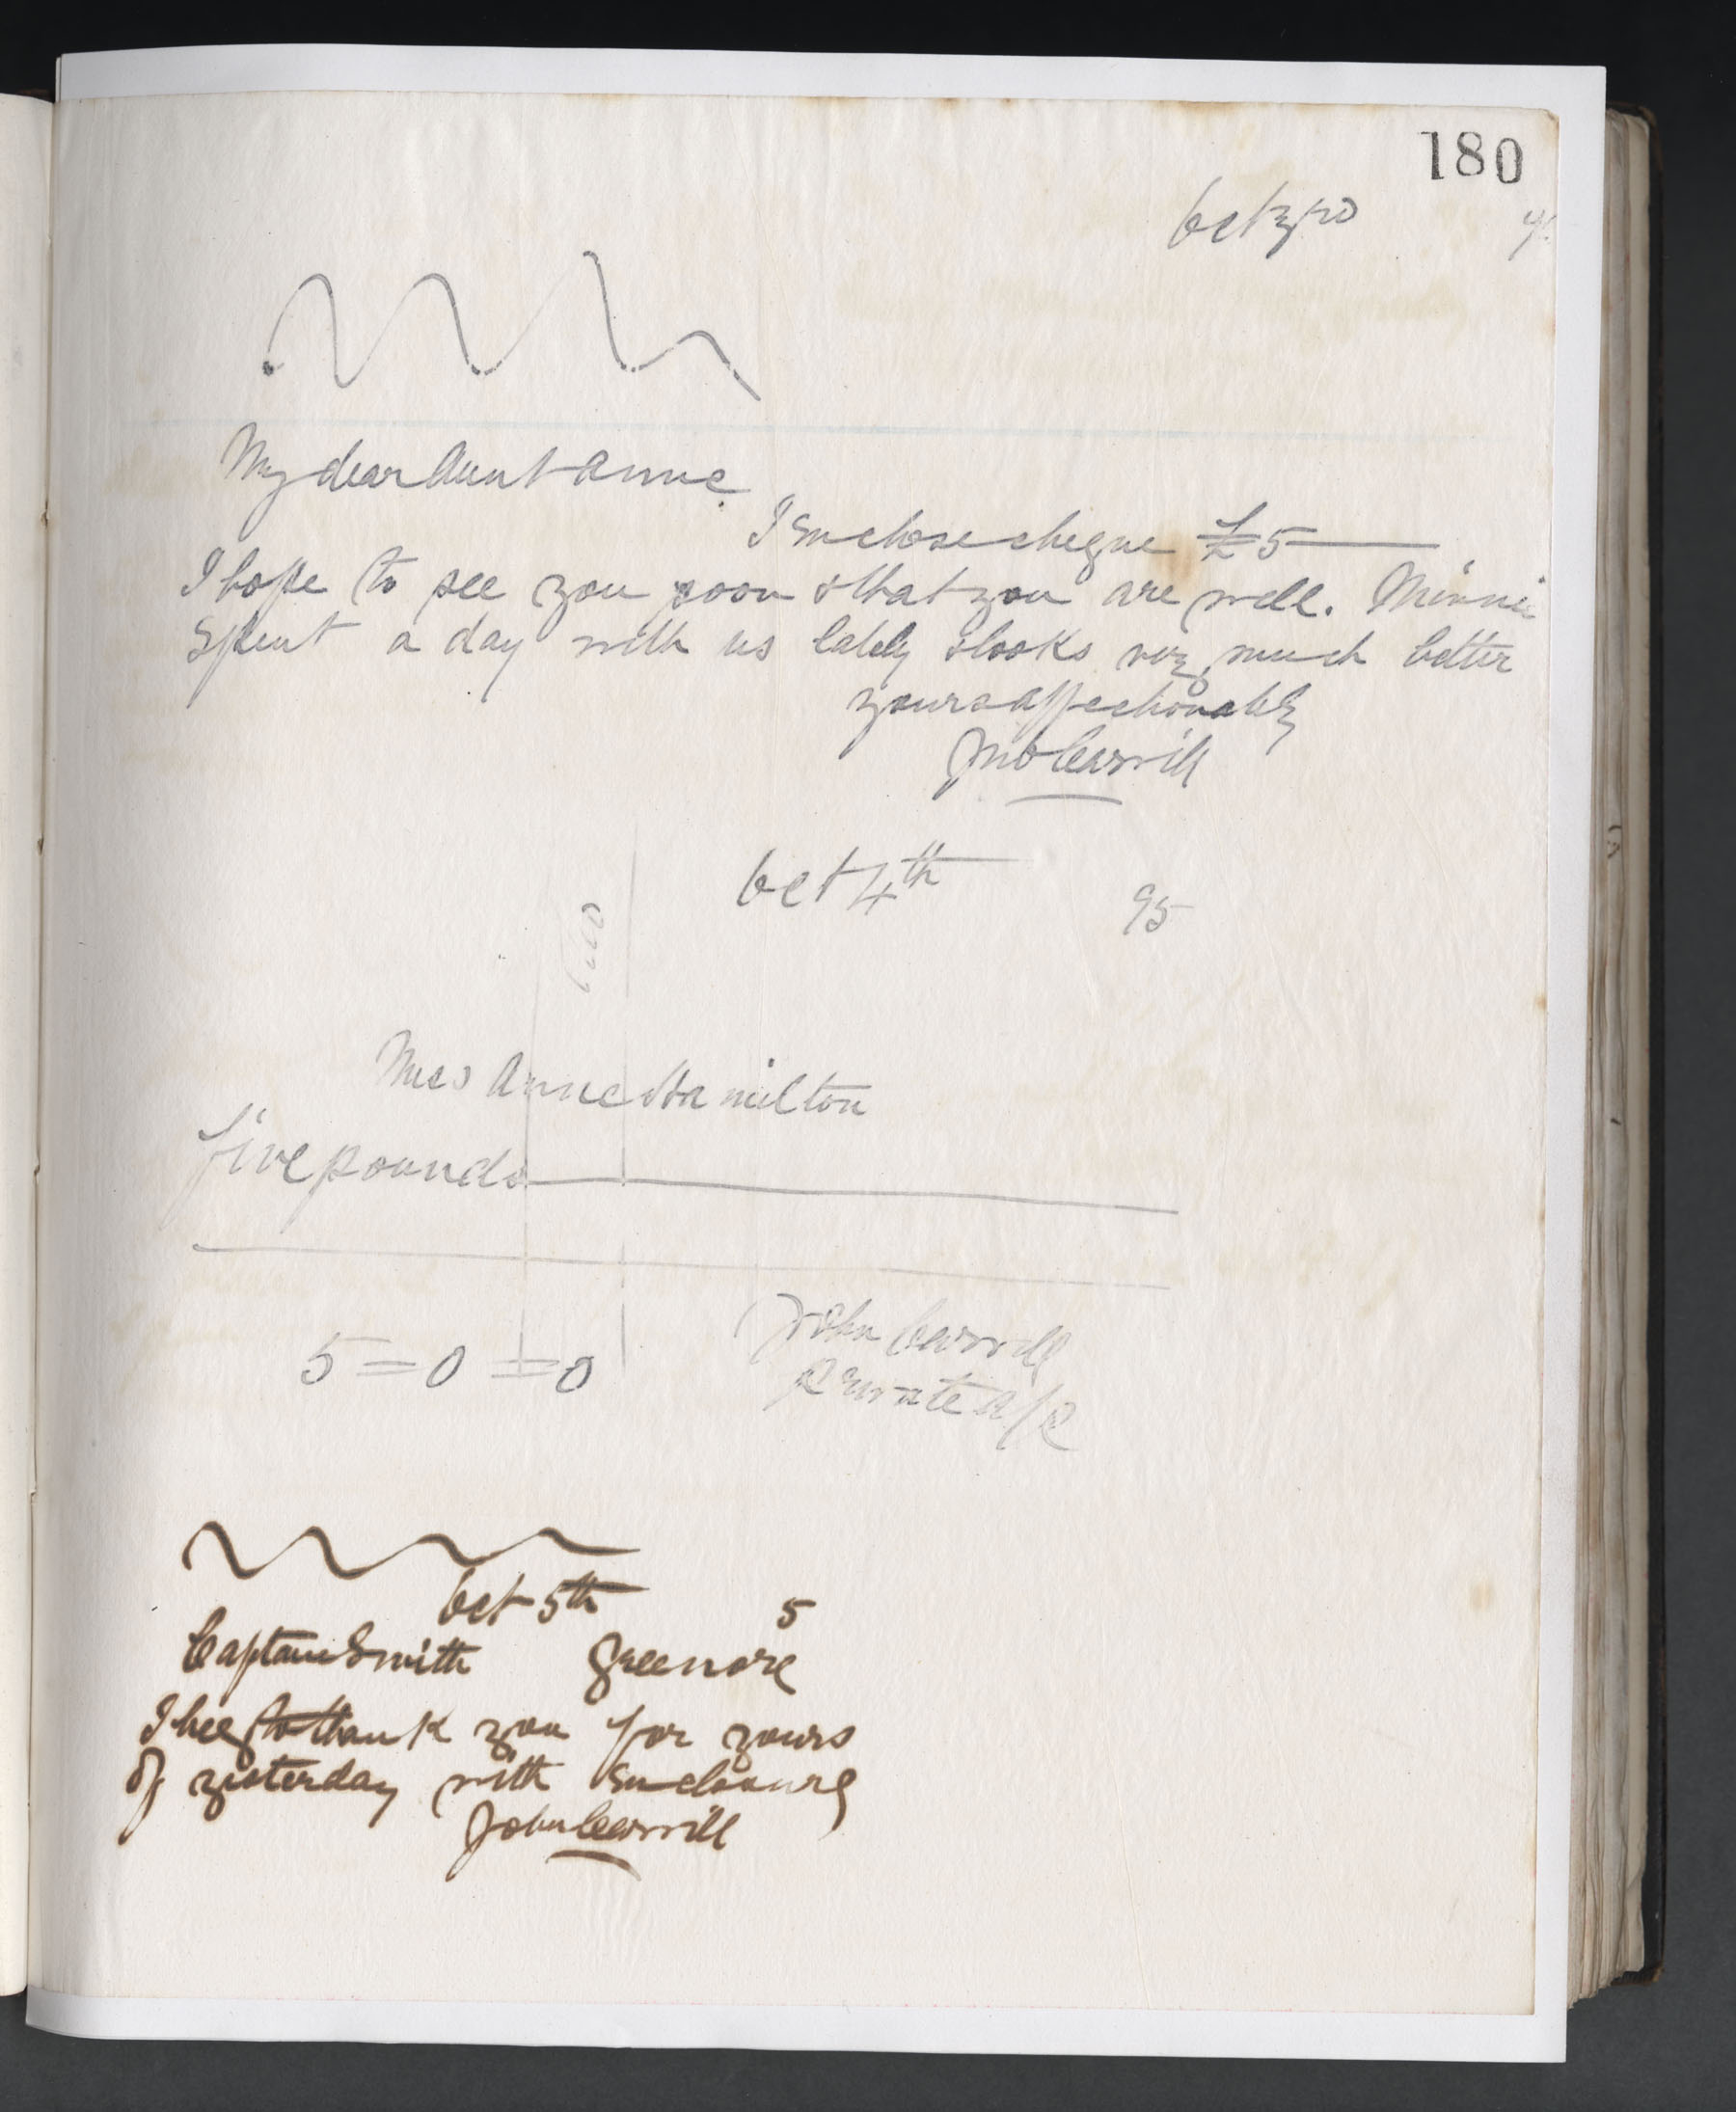 180
Oct 3rd
My dear Aunt Anne
I enclose cheque £5
I hope to see you soon & that you are well. Minnie
spent a day with us lately & looks very much better
yours affectionately
Jno Carvill
Oct 4th 95
Miss Anne Hamilton
five pounds
5=0=0 John Carvill
Private a/c
Oct 5th 5
Captain Smith Greenore
I beg to thank you for yours
of yesterday with enclosure
John Carvill